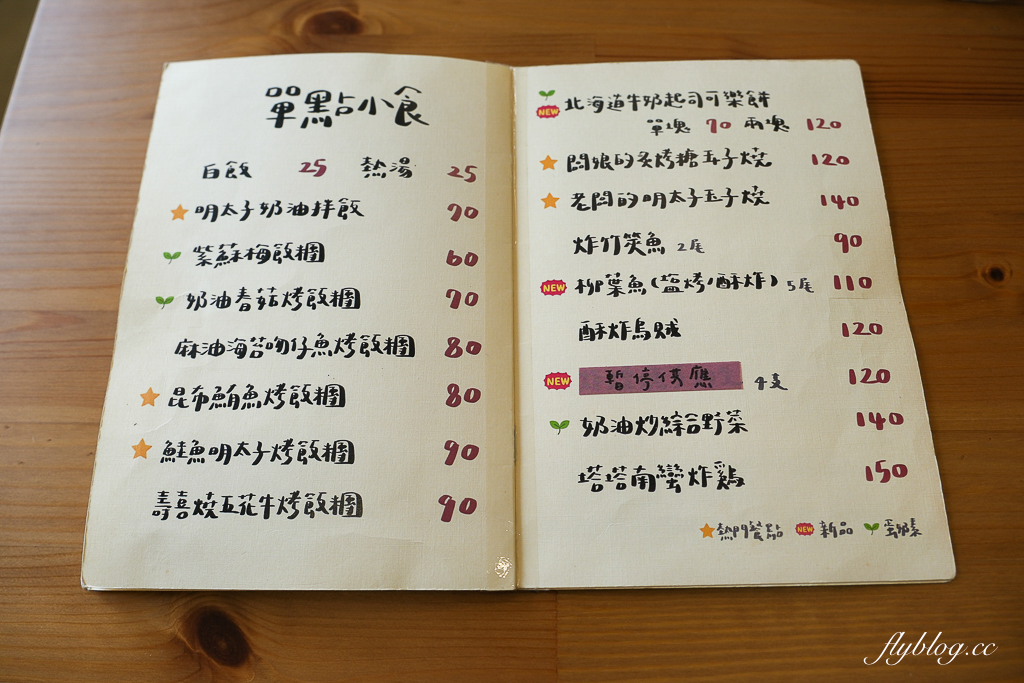 單點小食
白飯 25 熱湯 25
明太子奶油拌飯 90
紫蘇梅飯糰 60
奶油香菇烤飯糰 70
麻油海苔吻仔魚烤飯糰 80
昆布鮪魚烤飯糰 80
鮭魚明太子烤飯糰 90
壽喜燒五花牛烤飯糰 90
NEW 北海道牛奶起司可樂餅
單塊 70 兩塊 120
闆娘的炙烤糖玉子燒 120
老闆的明太子玉子燒 140
炸竹筴魚 2尾 90
NEW 柳葉魚(塩烤/酥炸) 5尾 110
酥炸烏賊 120
NEW 暫停供應 4支 120
奶油炒綜合野菜 140
塔塔南蠻炸鷄 150
熱門餐點 NEW 新品 蛋奶素
flyblog.cc